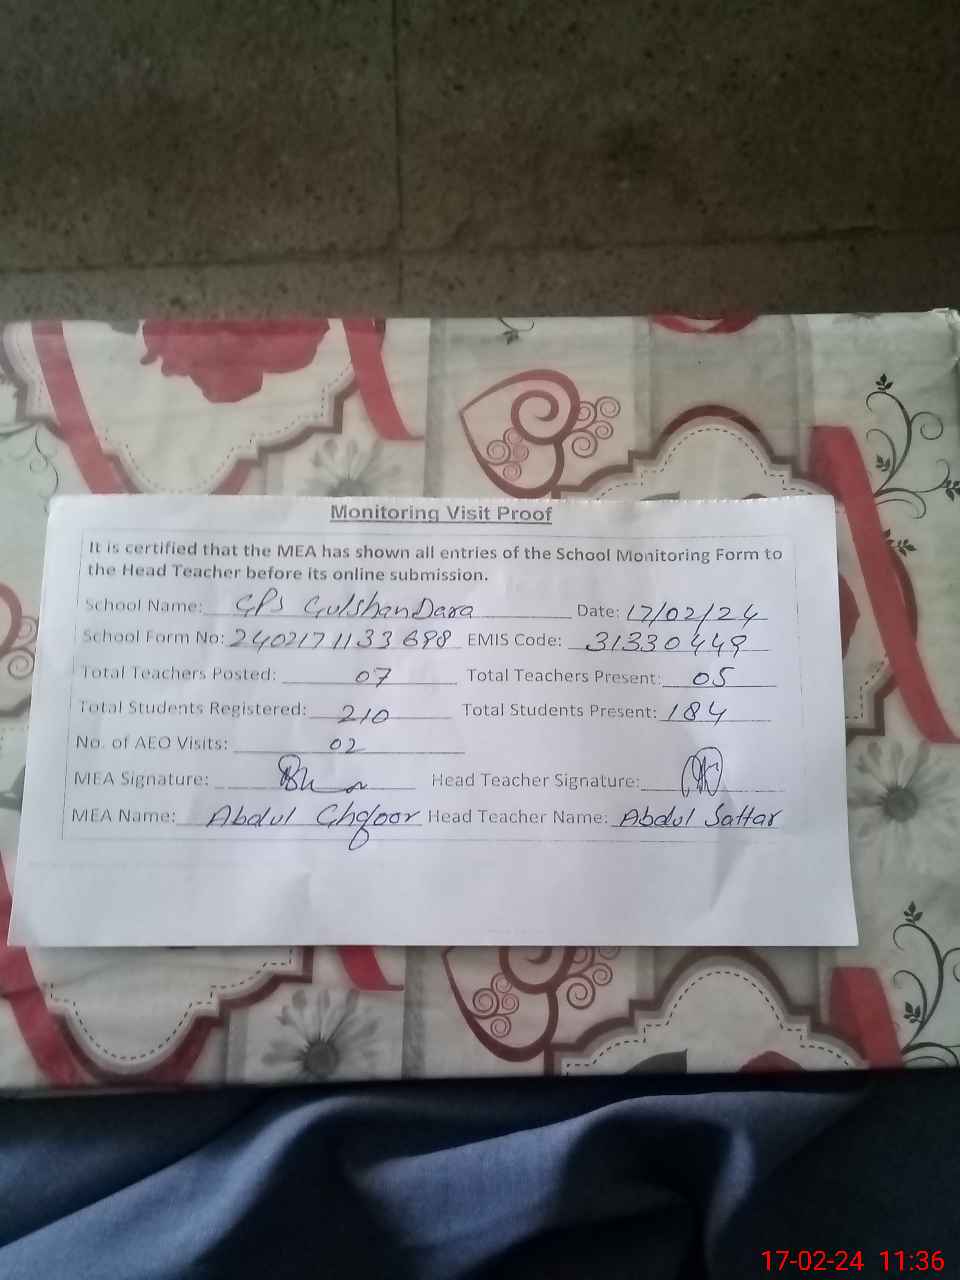 Monitoring Visit Proof
It is certified that the MEA has shown all entries of the School Monitoring Form to
the Head Teacher before its online submission.
School Name: GPS Gulshan Dara Date: 17/02/24
School Form No: 2402171133698 EMIS Code: 31330449
Total Teachers Posted: 07 Total Teachers Present: 05
Total Students Registered: 210 Total Students Present: 184
No. of AEO Visits: 02
MEA Signature: Head Teacher Signature:
MEA Name: Abdul Ghafoor Head Teacher Name: Abdul Sattar
17-02-24 11:36